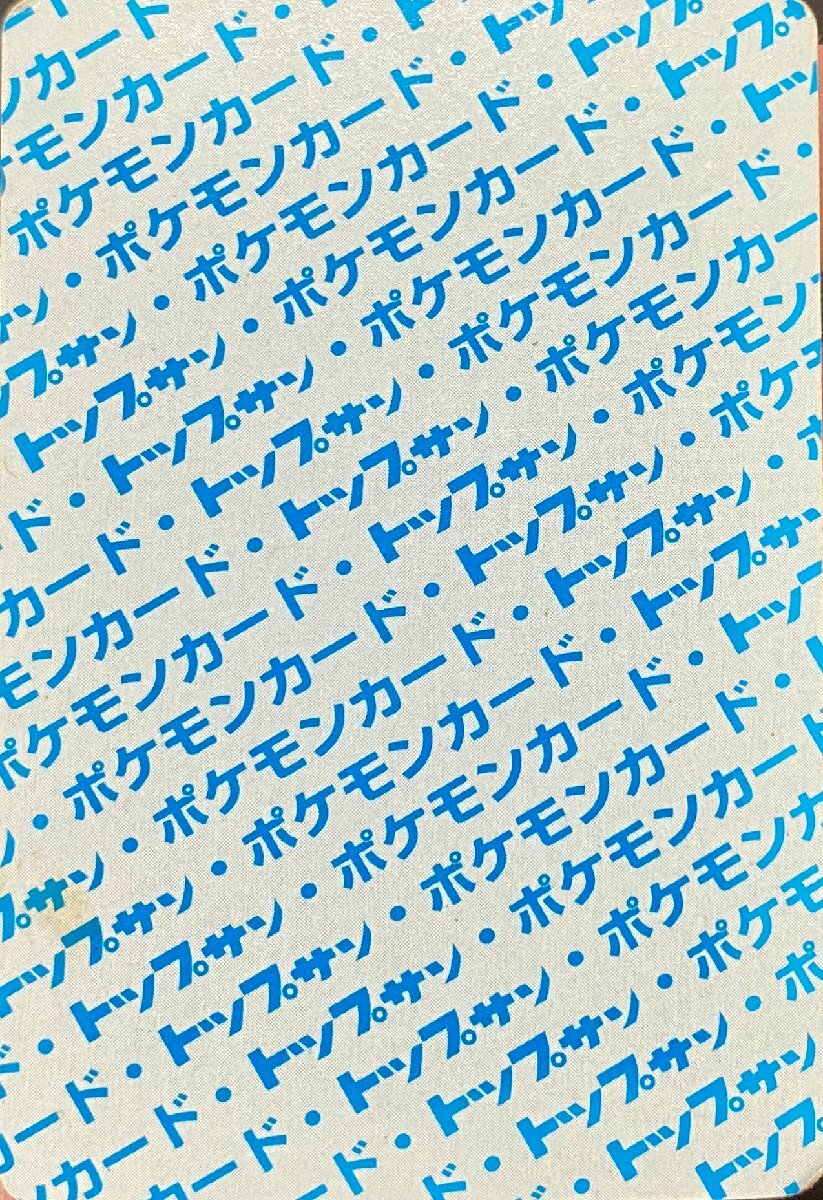 ンカード
モンカード・
ポケモンカード・ト
サン・ポケモンカード・トッ
プサン・ポケモンカード・トップ
トップサン・ポケモンカード・トップ
ド・トップサン・ポケモンカード・トッ
カード・トップサン・ポケモンカード・
モンカード・トップサン・ポケモンカー
ポケモンカード・トップサン・ポケモン
ン・ポケモンカード・トップサン・ポケモ
プサン・ポケモンカード・トップサン・ポ
トップサン・ポケモンカード・トップサン
・トップサン・ポケモンカード・トッ
ード・トップサン・ポケモンカード・
カード・トップサン・ポケモンカード
ード・トップサン・ポケモンカ
ド・トップサン・ポケモ
・トップサン・ポ
トップサン
トップ